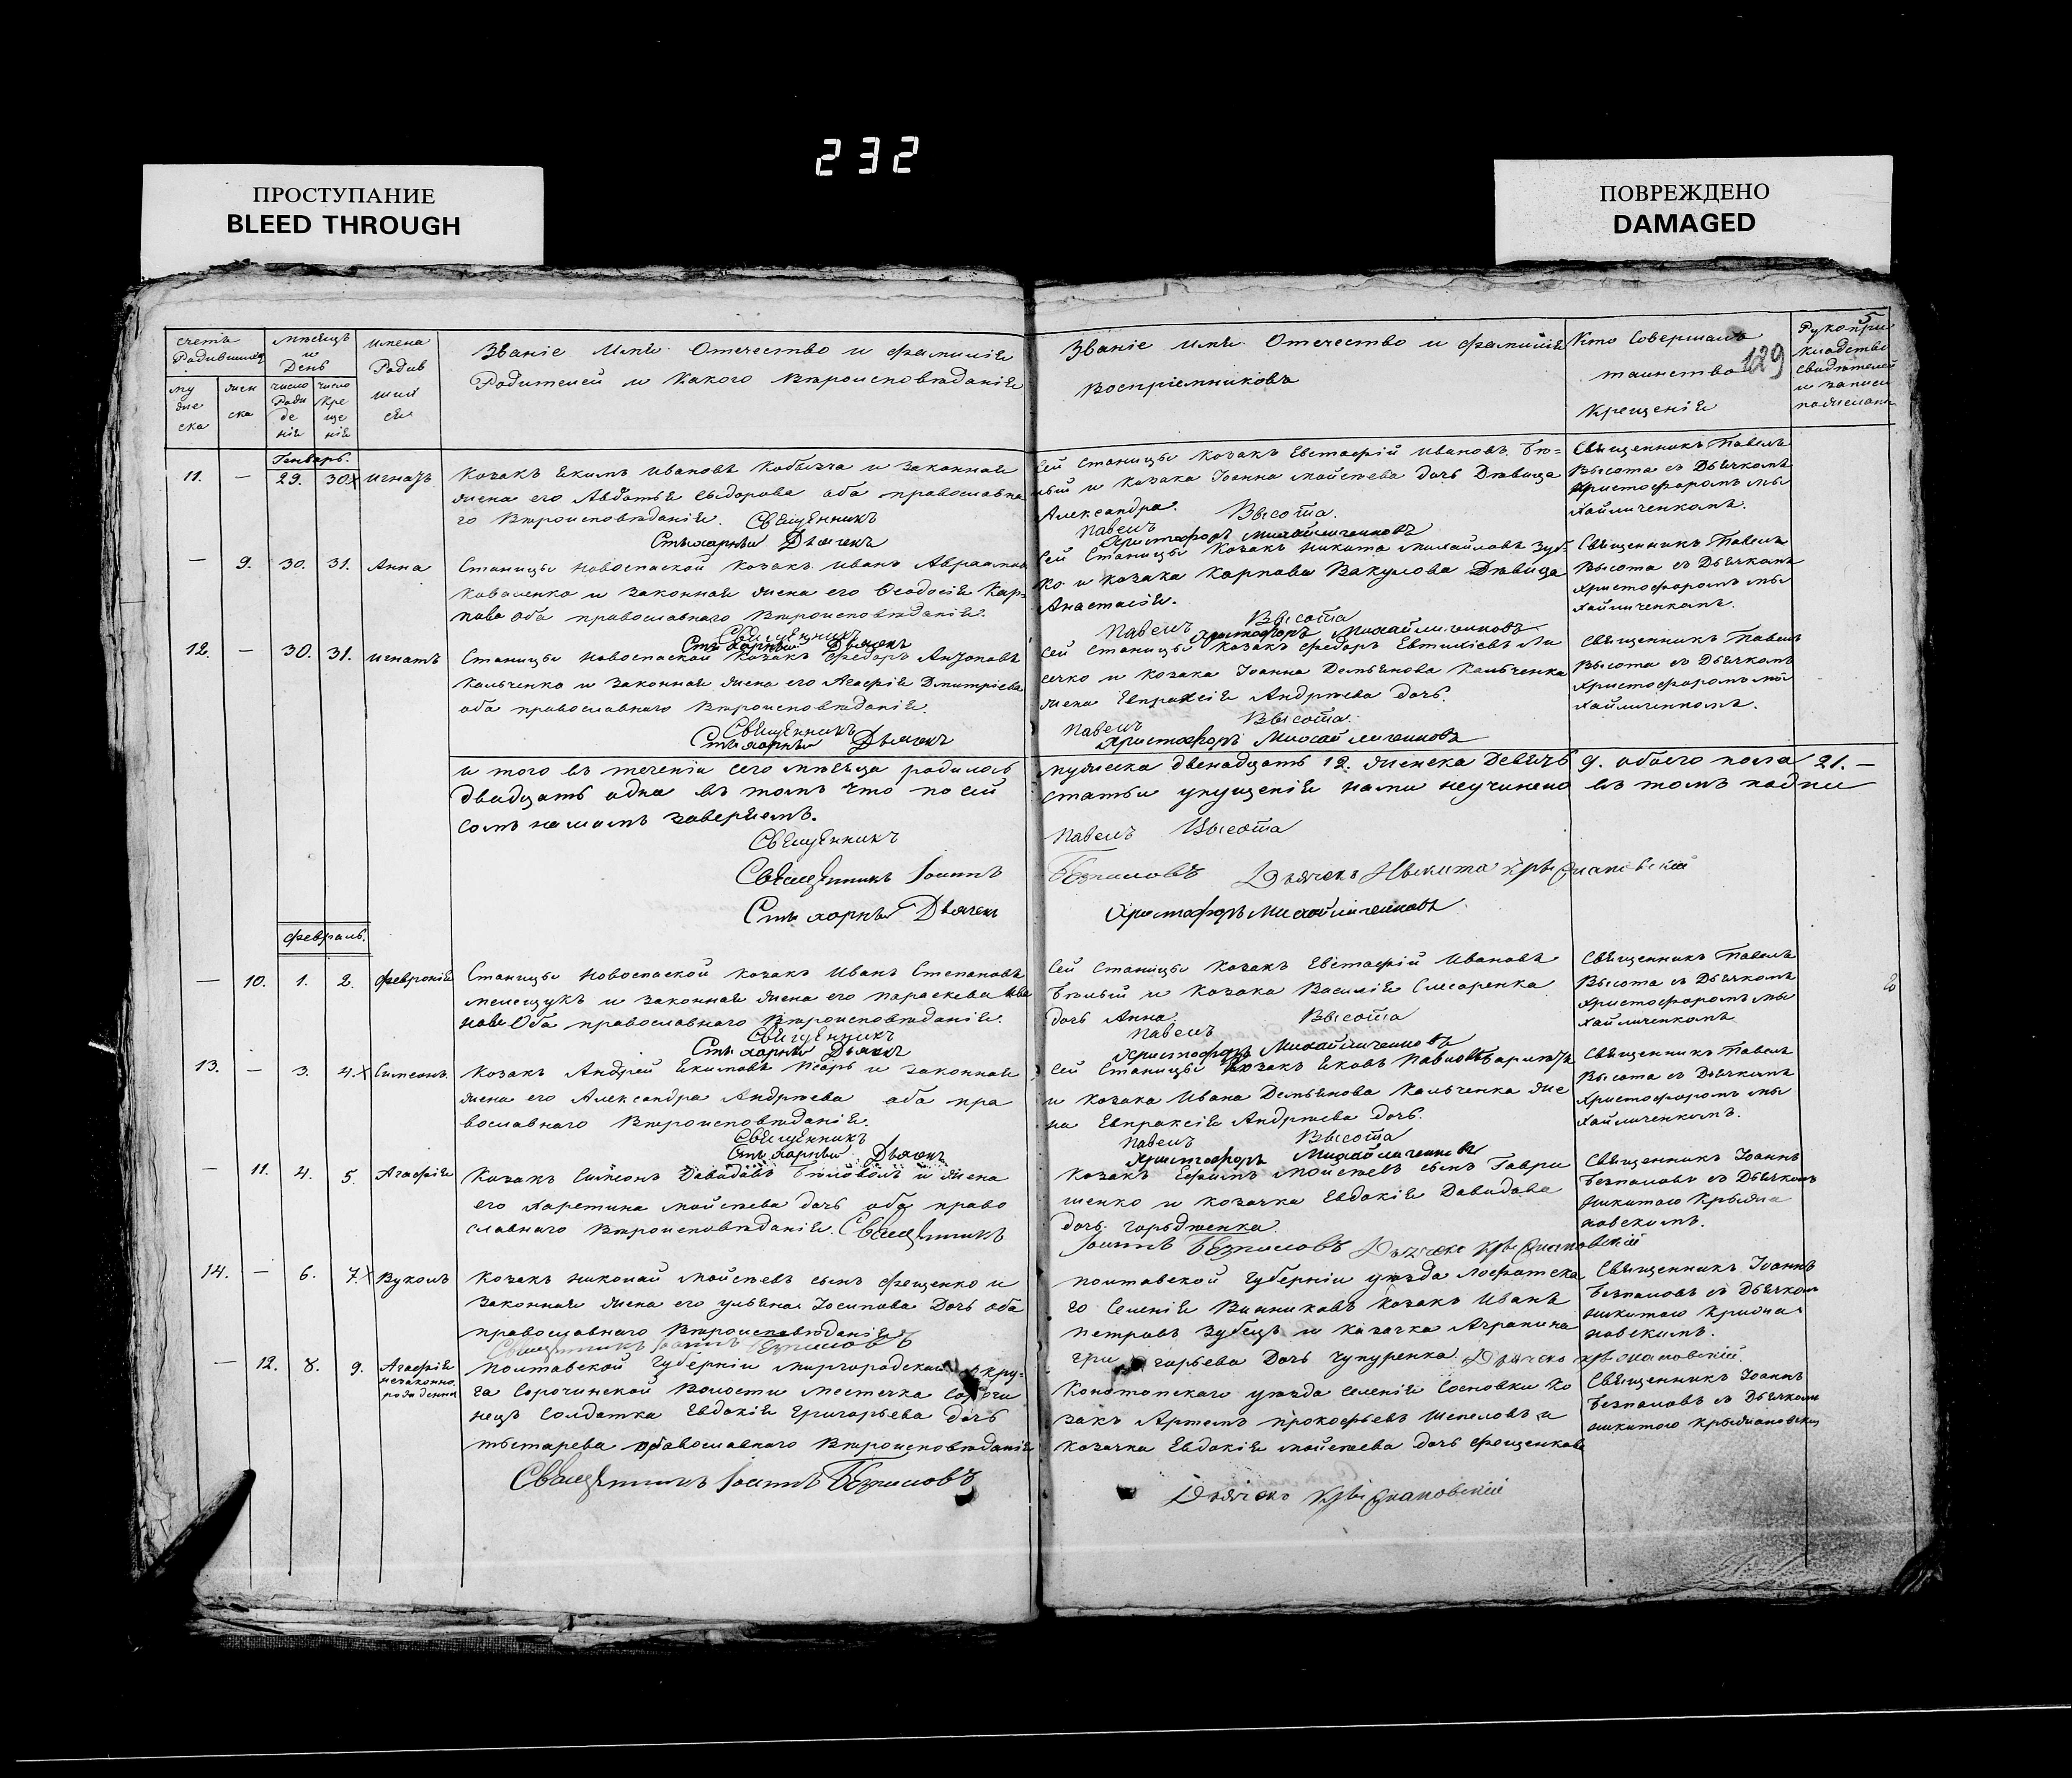 232
ПРОСТУПАНИЕ
BLEED THROUGH
ПОВРЕЖДЕНО
DAMAGED
5
129
счетъ Родившихся
му же ска
жен ска
мѣсяцъ и День
число Рожде нія
число Кре ще нія
имена Родив ших ся
Званіе Имя Отечество и фамилія
Родителей и Какого Вѣроисповѣданія
Званіе имя Отечество и фамилія
Воспріемниковъ
Кто Совершалъ
таинство
Крещенія
Рукопри
кладство
свидѣтелей
и записи
Генварь.
11. — 29. 30. Игнатъ
Козакъ Екимъ Ивановъ и законная
жена его Авдотья Сыдорова оба православна
го Вѣроисповѣданія. Священникъ
Стихарный Дьячекъ
Сей Станицы Козакъ Евстафій Ивановъ Бѣ=
лый и Козака Іоанна Мойсѣева дочь Дѣвица
Александра. Высота.
Павелъ
Христофоръ Михайличенковъ
Священникъ Павелъ
Высота съ Дьячкомъ
Христофоромъ Ми
хайличенкомъ.
— 9. 30. 31. Анна
Станицы Новоспаской Козакъ Иванъ Авраамовъ
Коваленко и законная жена его Феодосія Кар=
пова оба православнаго Вѣроисповѣданія.
Священникъ
Стихарный Дьячекъ
Сей Станицы Козакъ Никита Михайловъ Зуб=
ко и козака Карпова Вакулова Дѣвица
Анастасія.
Павелъ Высота
Христофоръ Михайличенковъ
Священникъ Павелъ
Высота съ Дьячкомъ
Христофоромъ Ми
хайличенкомъ.
12. — 30. 31. Игнатъ
Станицы Новоспаской Козакъ Федоръ Антоновъ
Кальченко и законная жена его Агафія Дмитріева
оба православнаго Вѣроисповѣданія.
Священникъ
Стихарный Дьячекъ
Сей Станицы Козакъ Федоръ Евтихіевъ Ли
сечко и козака Іоанна Демьянова Кальченка
жена Евпраксія Андрѣева дочь.
Павелъ Высота.
Христофоръ Михайличенковъ
Священникъ Павелъ
Высота съ Дьячкомъ
Христофоромъ Ми
хайличенкомъ.
и того въ теченіи сего мѣсяца родилось
двадцать одна въ томъ что по сей
сомъ нашимъ заверяемъ.
мужеска двенадцать 12. женска Девять 9. обоего пола 21. —
статьи упущенія нами неучинено въ томъ подпи
Священникъ
Павелъ Высота
Священникъ Іоаннъ
Безпаловъ Дьячекъ Никита Крыжановскій
Стихарный Дьячекъ
Христофоръ Михайличенковъ
Февраль.
— 10. 1. 2. Февронія
Станицы Новоспаской козакъ Иванъ Степановъ
Мелещукъ и законная жена его Параскева Ива
нова Оба православнаго Вѣроисповѣданія.
Священникъ
Стихарный Дьячекъ
Сей Станицы Козакъ Евстафій Ивановъ
Бѣлый и Козака Василія Слесаренка
дочь Анна. Высота
Павелъ
Христофоръ Михайличенковъ
Священникъ Павелъ
Высота съ Дьячкомъ
Христофоромъ Ми
хайличенкомъ
13. — 3. 4. Симеонъ
Козакъ Андрей Екимовъ Псарь и законная
жена его Александра Андрѣева оба пра
вославнаго Вѣроисповѣданія.
Священникъ
Стихарный Дьячекъ
Сей Станицы Козакъ Яковъ Павловъ
и козака Ивана Демьянова Кальченка же
на Евпраксія Андрѣева дочь.
Павелъ Высота
Христофоръ Михайличенковъ
Священникъ Павелъ
Высота съ Дьячкомъ
Христофоромъ Ми
хайличенкомъ.
— 11. 4. 5. Агафія
Козакъ Симеонъ Давидовъ и жена
его Харетина Мойсѣева дочь оба право
славнаго Вѣроисповѣданія. Священникъ
Козакъ Ефимъ Мойсѣевъ сынъ Гаври
ленко и козачка Евдокія Давидова
дочь
Іоаннъ Безпаловъ Дьячекъ Крыжановскій
Священникъ Іоаннъ
Безпаловъ съ Дьячкомъ
Никитою Крыжа
новскимъ.
14. — 6. 7. Вуколъ
Козакъ Николай Мойсѣевъ сынъ Фещенко и
законная жена его Ульяна Іосипова Дочь оба
православнаго Вѣроисповѣданія
Священникъ Іоаннъ Безпаловъ
Полтавской Губерніи уѣзда
го Селенія Козакъ Иванъ
Петровъ Зубецъ и козачка Аграпина
Гри горьева Дочь Чупуренка Дьячекъ Крыжановскій.
Священникъ Іоаннъ
Безпаловъ съ Дьячком
Никитою Крижа
новскимъ.
— 12. 8. 9. Агафія незаконно рожденна
Полтавской Губерніи Миргородскаго окру=
га Сорочинской Волости Местечка Сорочи
нецъ Солдатка Евдокія Григорьева дочь
православнаго Вѣроисповѣданія
Священникъ Іоаннъ Безпаловъ
Конотопскаго уѣзда селенія Сосновки Ко
закъ Артемъ Прокофьевъ Шепеловъ и
козачка Евдокія Мойсѣева дочь Фещенкова
Дьячекъ Крыжановскій
Священникъ Іоаннъ
Безпаловъ съ Дьячком
Никитою Крыжановским